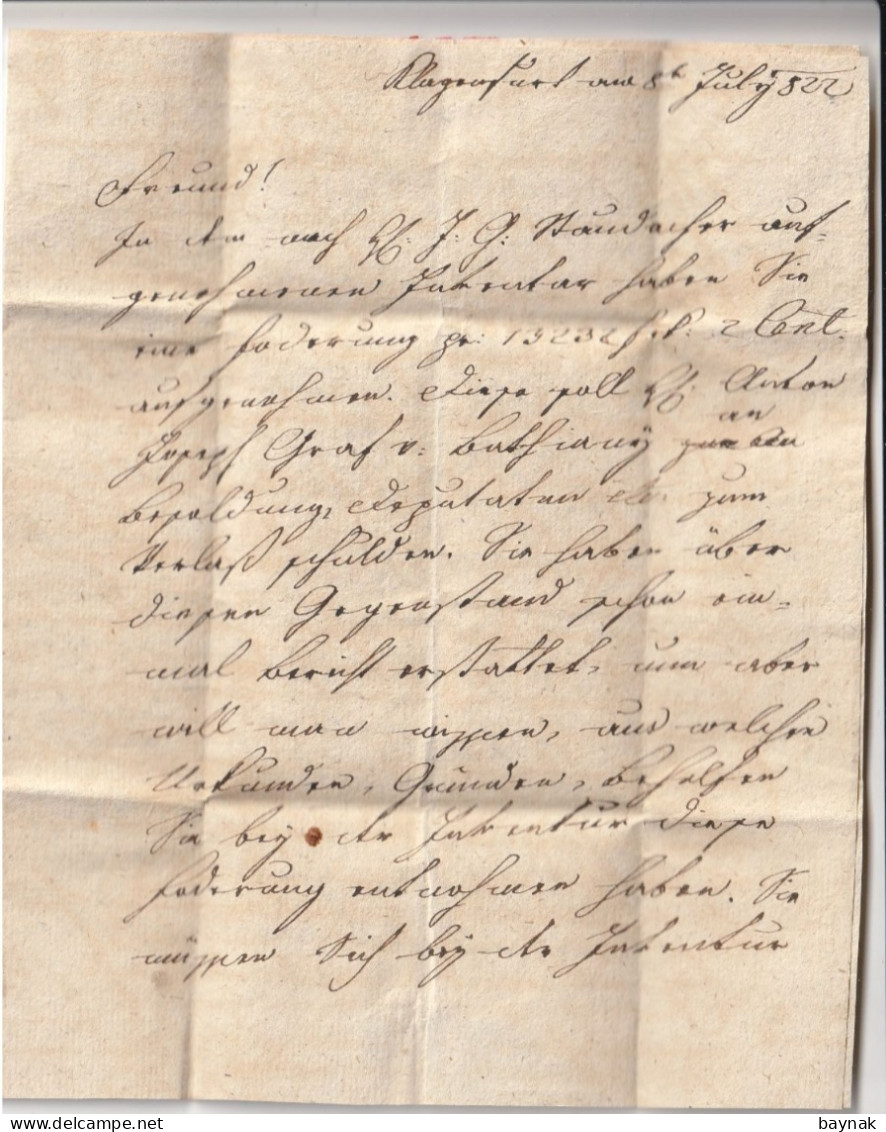 Klagenfurt am 8t July 822
Freund!
In dem nach H: J: G: Staudacher auf-
genohmenen Inventar haben Sie
eine Foderung pr: 13232 f 2 Cent.
aufgenohmen. Diese soll H: Anton
Joseph Graf v: Bathiany an
Besoldung, Deputaten etc. zum
Verlaß schulden. Sie haben über
diesen Gegenstand schon ein-
mal Bericht erstattet, nun aber
will man wissen, aus welchen
Urkunden, Gründen, Behelfen
Sie bey der Inventur diese
Foderung entnohmen haben. Sie
müssen Sich bey der Inventur
baynak